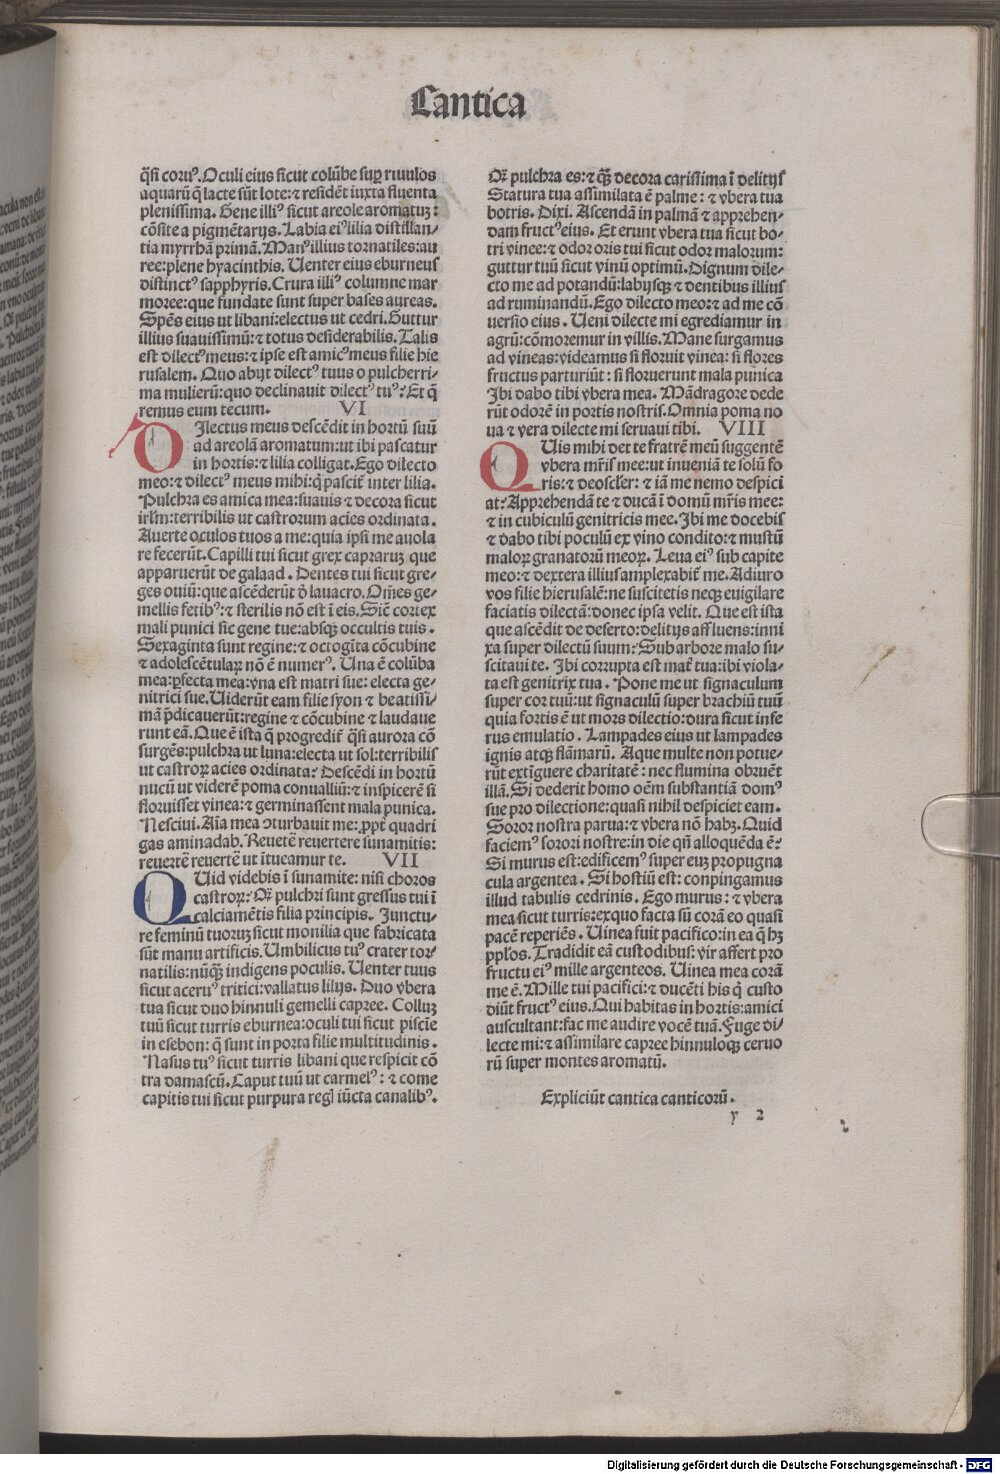 Cantica
q̃si coruꝰ. Oculi eius sicut colũbe suꝑ riuulos
aquarũ q̃ lacte sũt lote: ⁊ residẽt iuxta fluenta
plenissima. Gene illiꝰ sicut areole aromatuꝫ:
cõsite a pigmẽtarijs. Labia eiꝰ lilia distillan/
tia myrrhã primã. Manꝰ illius tornatiles: au
ree: plene hyacinthis. Uenter eius eburneus
distinctꝰ sapphyris. Crura illiꝰ columne mar
moree: que fundate sunt super bases aureas.
Spẽs eius ut libani: electus ut cedri. Guttur
illius suauissimũ: ⁊ totus desiderabilis. Talis
est dilectꝰ meus: ⁊ ipse est amicꝰ meus filie hie
rusalem. Quo abijt dilectꝰ tuus o pulcherri/
ma mulierũ: quo declinauit dilectꝰ tuꝰ? Et q̃
remus eum tecum. VI
DIlectus meus descẽdit in hortũ suũ
ad areolã aromatum: ut ibi pascatur
in hortis: ⁊ lilia colligat. Ego dilecto
meo: ⁊ dilectꝰ meus mihi: q̃ pascit̃ inter lilia.
Pulchra es amica mea: suauis ⁊ decora sicut
irl̃m: terribilis ut castrorum acies ordinata.
Auerte oculos tuos a me: quia ipsi me auola
re fecerũt. Capilli tui sicut grex capraruꝫ que
apparuerũt de galaad. Dentes tui sicut gre/
ges ouiũ: que ascẽderũt d̃ lauacro. Om̃es ge/
mellis fetibꝰ: ⁊ sterilis nõ est ĩ eis. Sic̃ cortex
mali punici sic gene tue: absqꝫ occultis tuis.
Sexaginta sunt regine: ⁊ octogĩta cõcubine
⁊ adolescẽtulaꝝ nõ ẽ numerꝰ. Una ẽ colũba
mea: ꝑfecta mea: vna est matri sue: electa ge/
nitrici sue. Uiderũt eam filie syon ⁊ beatissi/
mã p̃dicauerũt: regine ⁊ cõcubine ⁊ laudaue
runt eã. Que ẽ ista q̃ progredit̃ q̃si aurora cõ
surgẽs: pulchra ut luna: electa ut sol: terribilis
ut castroꝝ acies ordinata? Descẽdi in hortũ
nucũ ut viderẽ poma conualliũ: ⁊ inspicerẽ si
floruisset vinea: ⁊ germinassent mala punica.
Nesciui. Aĩa mea ꝯturbauit me: ꝓpt̃ quadri
gas aminadab. Reuertẽ reuertere sunamitis:
reuertẽ reuertẽ ut ĩtueamur te. VII
QUid videbis ĩ sunamite: nisi choros
castroꝝ? Q̃ꝫ pulchri sunt gressus tui ĩ
calciamẽtis filia principis. Junctu/
re feminũ tuoruꝫ sicut monilia que fabricata
sũt manu artificis. Umbilicus tuꝰ crater tor/
natilis: nũq̃ꝫ indigens poculis. Uenter tuus
sicut aceruꝰ tritici: vallatus lilijs. Duo vbera
tua sicut duo hinnuli gemelli capree. Colluꝫ
tuũ sicut turris eburnea: oculi tui sicut piscĩe
in esebon: q̃ sunt in porta filie multitudinis.
Nasus tuꝰ sicut turris libani que respicit cõ
tra damascũ. Caput tuũ ut carmelꝰ: ⁊ come
capitis tui sicut purpura reg̃ iũcta canalibꝰ.
Q̃ꝫ pulchra es: ⁊ q̃ꝫ decora carissima ĩ delitijs
Statura tua assimilata ẽ palme: ⁊ vbera tua
botris. Dixi. Ascendã in palmã ⁊ apprehen/
dam fructꝰ eius. Et erunt vbera tua sicut bo/
tri vinee: ⁊ odor oris tui sicut odor malorum:
guttur tuũ sicut vinũ optimũ. Dignum dile/
cto me ad potandũ: labijsqꝫ ⁊ dentibus illius
ad ruminandũ. Ego dilecto meo: ⁊ ad me cõ
uersio eius. Ueni dilecte mi egrediamur in
agrũ: cõmoremur in villis. Mane surgamus
ad vineas: videamus si floruit vinea: si flores
fructus parturiũt: si floruerunt mala punica
Jbi dabo tibi vbera mea. Mãdragore dede
rũt odorẽ in portis nostris. Omnia poma no
ua ⁊ vera dilecte mi seruaui tibi. VIII
QUis mihi det te fratrẽ meũ suggentẽ
vbera mr̃is mee: ut inueniã te solũ fo
ris: ⁊ deosc̃ler: ⁊ iã me nemo despici
at? Apprehendã te ⁊ ducã ĩ domũ mr̃is mee:
⁊ in cubiculũ genitricis mee. Jbi me docebis
⁊ dabo tibi poculũ ex vino condito: ⁊ mustũ
maloꝝ granatorũ meoꝝ. Leua eiꝰ sub capite
meo: ⁊ dextera illius amplexabit̃ me. Adiuro
vos filie hierusalẽ: ne suscitetis neqꝫ euigilare
faciatis dilectã: donec ipsa velit. Que est ista
que ascẽdit de deserto: delitijs affluens: inni
xa super dilectũ suum? Sub arbore malo su/
scitaui te. Jbi corrupta est mat̃ tua: ibi viola/
ta est genitrix tua. Pone me ut signaculum
super cor tuũ: ut signaculũ super brachiũ tuũ
quia fortis ẽ ut mors dilectio: dura sicut infe
rus emulatio. Lampades eius ut lampades
ignis atqꝫ flãmarũ. Aque multe non potue/
rũt extĩguere charitatẽ: nec flumina obruẽt
illã. Si dederit homo oẽm substantiã domꝰ
sue pro dilectione: quasi nihil despiciet eam.
Soror nostra parua: ⁊ vbera nõ habꝫ. Quid
faciemꝰ sorori nostre: in die qũ alloquẽda ẽ?
Si murus est: edificemꝰ super euꝫ propugna
cula argentea. Si hostiũ est: conpingamus
illud tabulis cedrinis. Ego murus: ⁊ vbera
mea sicut turris: ex quo facta sũ corã eo quasi
pacẽ reperiẽs. Uinea fuit pacifico: in ea q̃ hꝫ
pplõs. Tradidit eã custodibus: vir affert pro
fructu eiꝰ mille argenteos. Uinea mea corã
me ẽ. Mille tui pacifici: ⁊ ducẽti his q̃ custo
diũt fructꝰ eius. Qui habitas in hortis: amici
auscultant: fac me audire vocẽ tuã. Fuge di/
lecte mi: ⁊ assimilare capree hinnuloqꝫ ceruo
rũ super montes aromatũ.
Expliciũt cantica canticorũ.
y 2
Digitalisierung gefördert durch die Deutsche Forschungsgemeinschaft - DFG